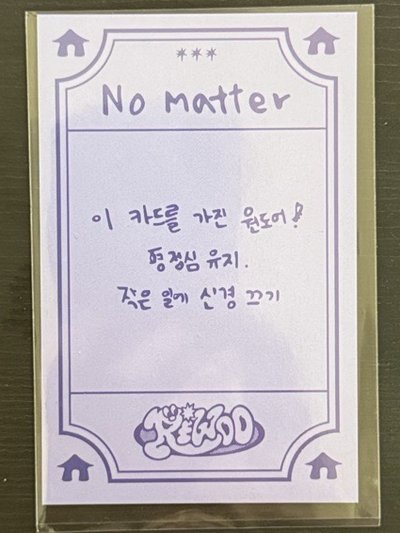 No matter
이 카드를 가진 원도어!
평정심 유지.
작은 일에 신경 끄기
RIWOO